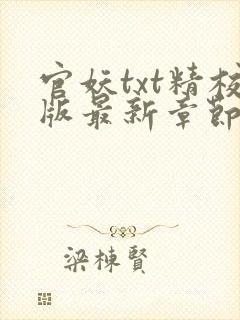 官妖txt精校
版最新章節
梁棟賢